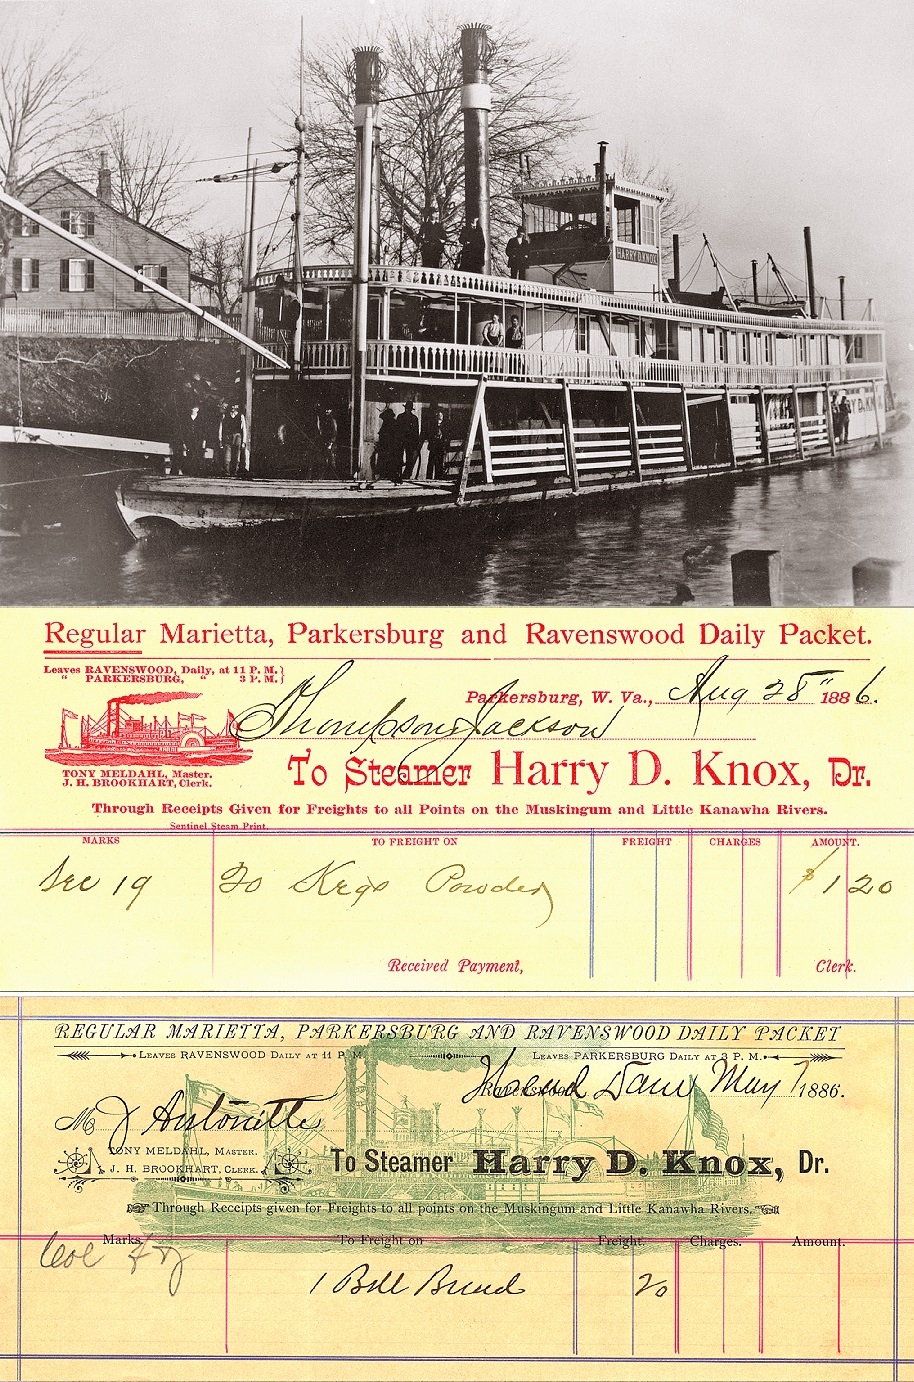 HARRY D. KNOX
Y D. KNOX
Regular Marietta, Parkersburg and Ravenswood Daily Packet.
Leaves RAVENSWOOD, Daily, at 11 P. M.}
" PARKERSBURG, " 3 P. M.}
Parkersburg, W. Va., Aug 28" 1886.
Thompson Jackson
To Steamer Harry D. Knox, Dr.
TONY MELDAHL, Master.
J. H. BROOKHART, Clerk.
Through Receipts Given for Freights to all Points on the Muskingum and Little Kanawha Rivers.
Sentinel Steam Print.
MARKS TO FREIGHT ON FREIGHT CHARGES AMOUNT.
Dec 19 20 Kegs Powder $1 20
Received Payment, Clerk.
REGULAR MARIETTA, PARKERSBURG AND RAVENSWOOD DAILY PACKET
LEAVES RAVENSWOOD DAILY AT 11 P. M. LEAVES PARKERSBURG DAILY AT 3 P. M.
Ravenswood Dam May 7 1886.
M J Antonette
TONY MELDAHL, MASTER.
J. H. BROOKHART, CLERK.
To Steamer Harry D. Knox, Dr.
Through Receipts given for Freights to all points on the Muskingum and Little Kanawha Rivers.
Marks. To Freight on Freight. Charges. Amount.
1 Bbll Bread 20